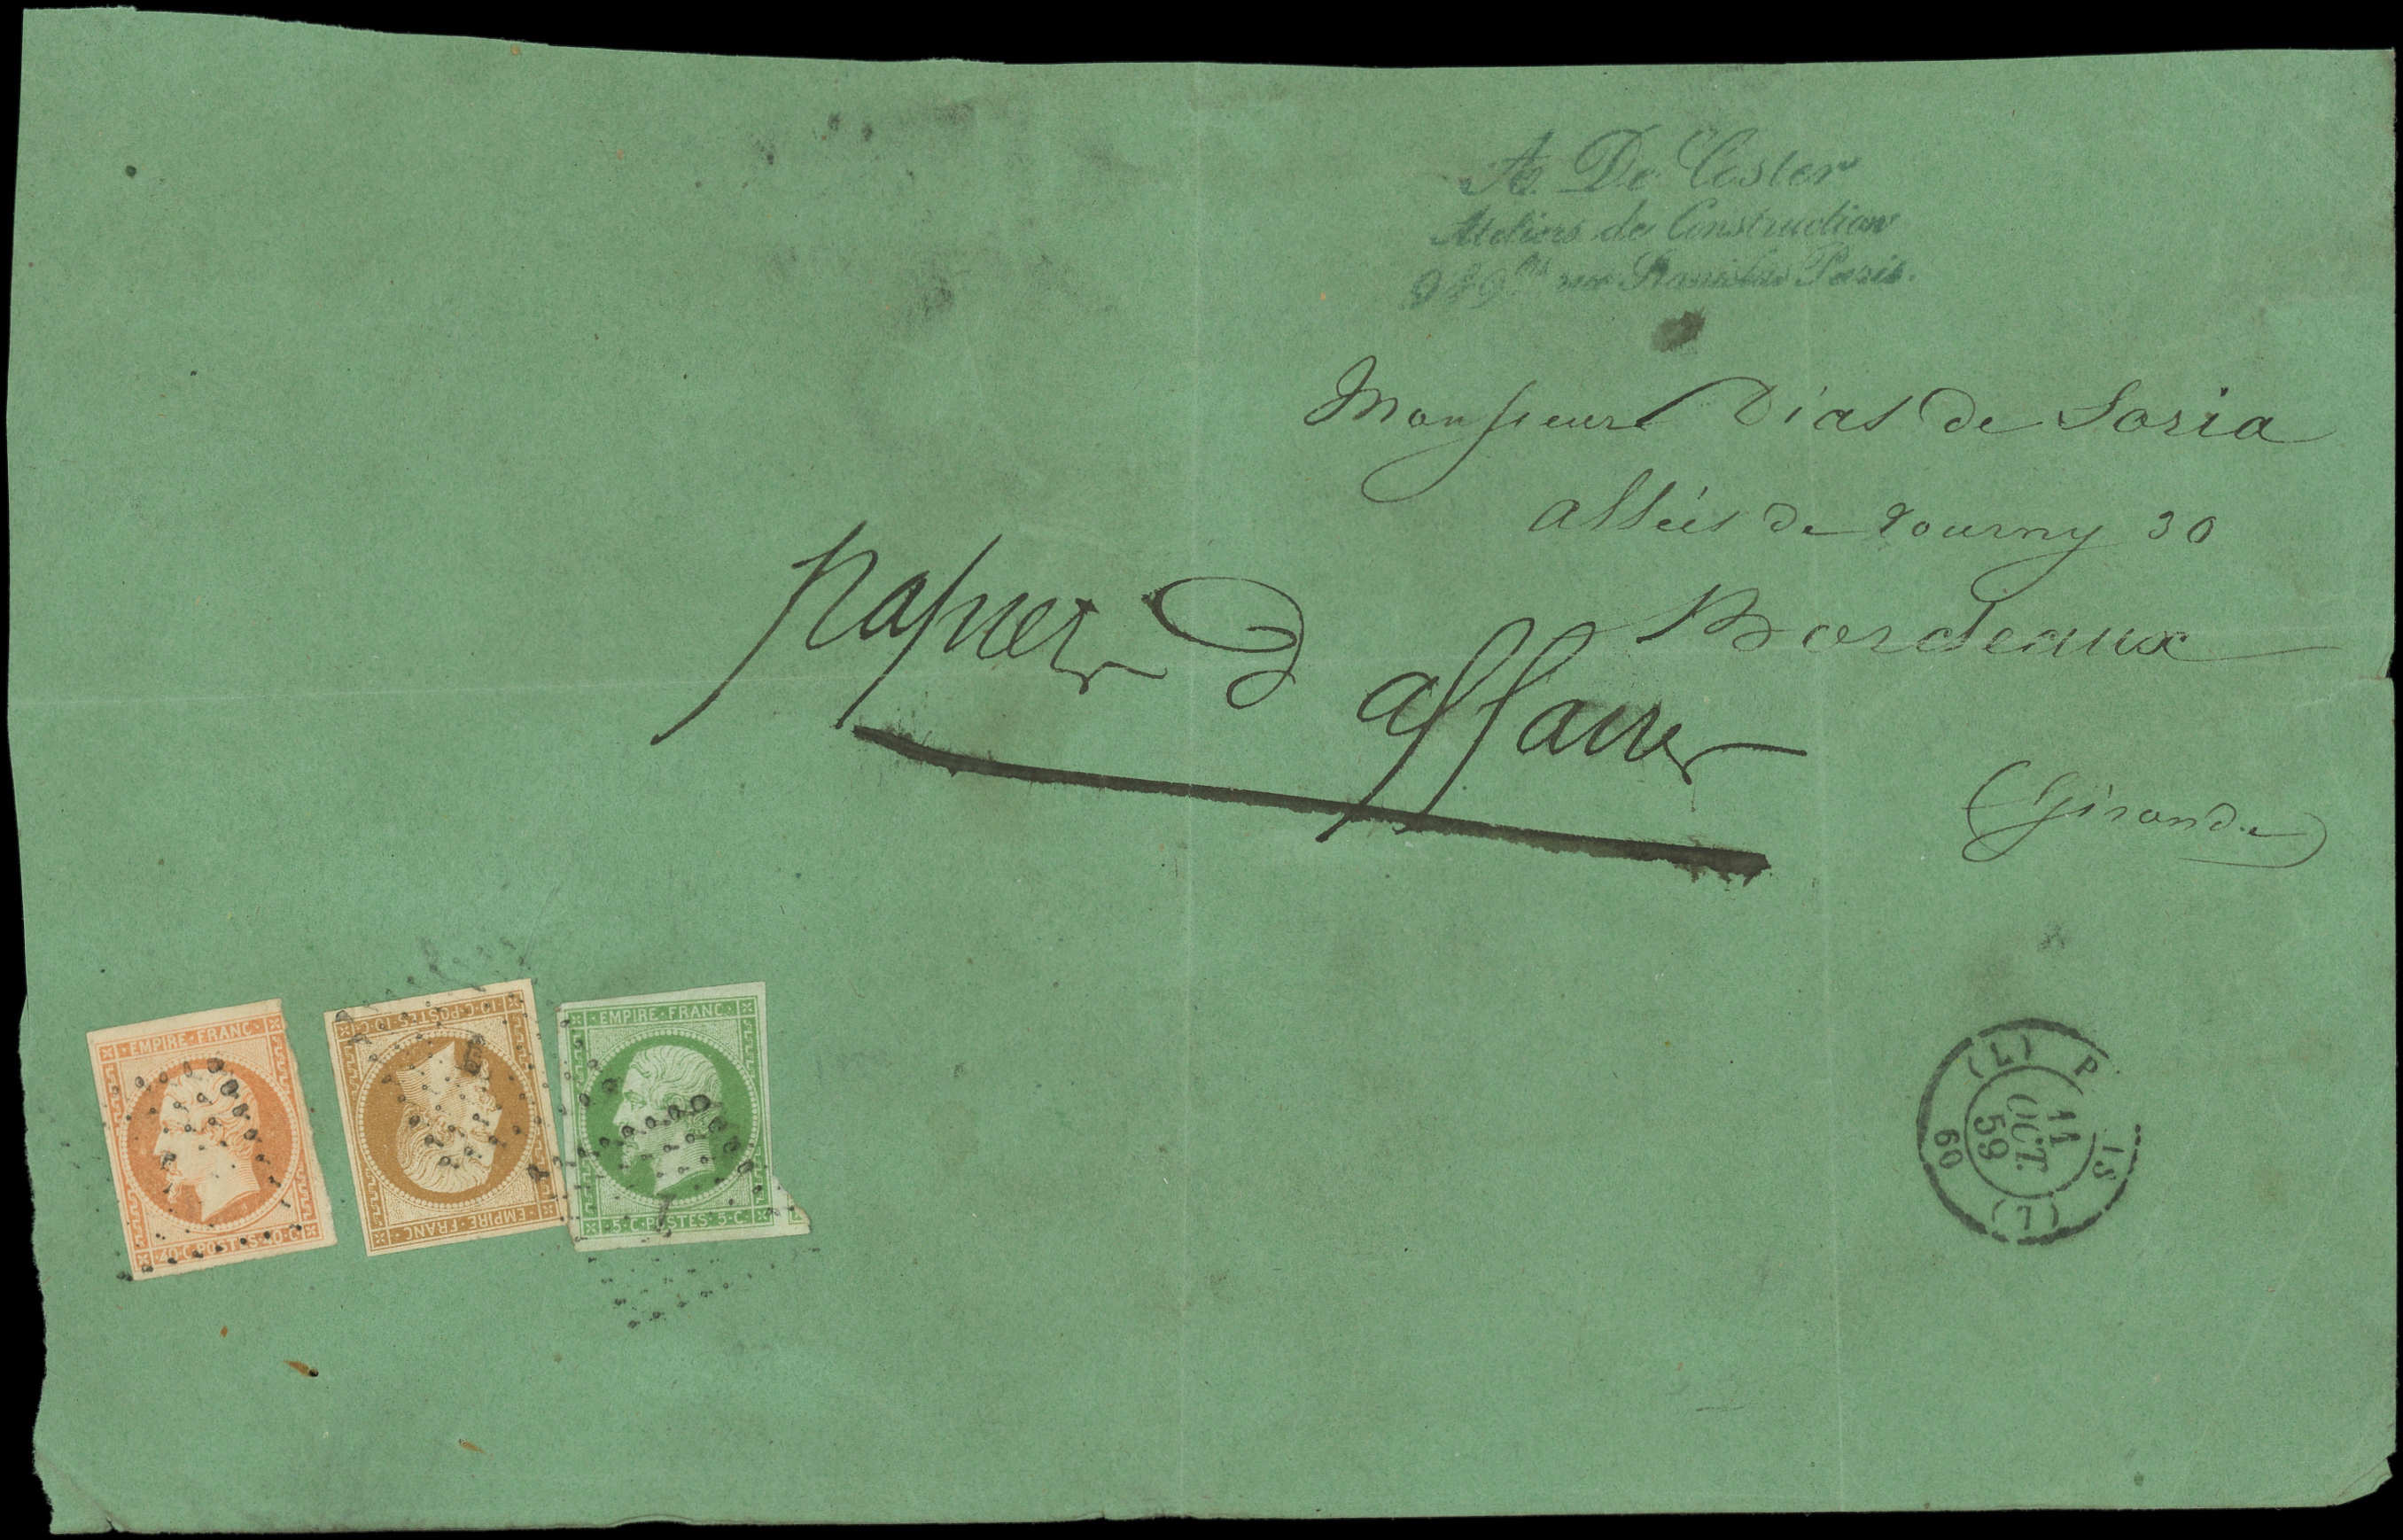 A. De Coster
Ateliers de Construction
9 & 9 bis rue Stanislas Paris.
Monsieur Dias de Soria
allées de tourny 30
Bordeaux
(Gironde)
papier d affaires
EMPIRE·FRANC·
40·C·POSTES·40·C·
10·C·POSTES·10·C·
EMPIRE·FRANC·
EMPIRE·FRANC·
5·C·POSTES·5·C·
(L) P IS (L)
11
OCT.
59
60